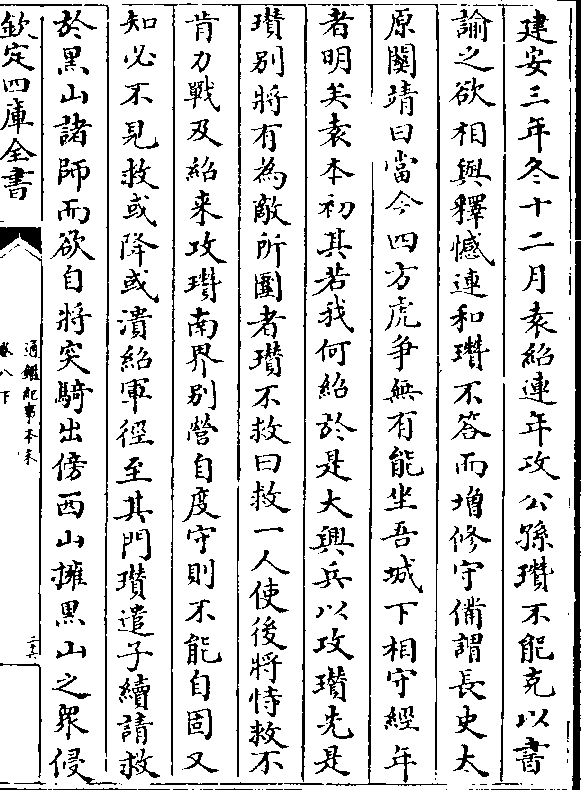 建安三年冬十二月袁紹連年攻公孫瓚不能克以書
諭之欲相與釋憾連和瓚不答而增修守備謂長史太
原關靖曰當今四方虎爭無有能坐吾城下相守經年
者明矣袁本初其若我何紹於是大興兵以攻瓚先是
瓚别將有為敵所圍者瓚不救曰救一人使後將恃救不
肯力戰及紹来攻瓚南界别營自度守則不能自固又
知必不見救或降或潰紹軍徑至其門瓚遣子續請救
於黑山諸帥而欲自將突騎出傍西山擁黑山之衆侵
欽定四庫全書
通鑑紀事本末
卷八下